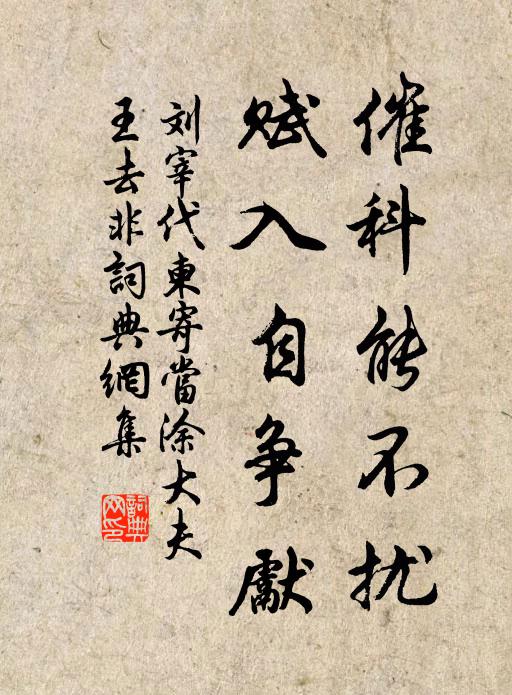 催科能不扰
赋入自争獻
刘宰代東寄當涂大夫
王去非詞典網集
詞典网印